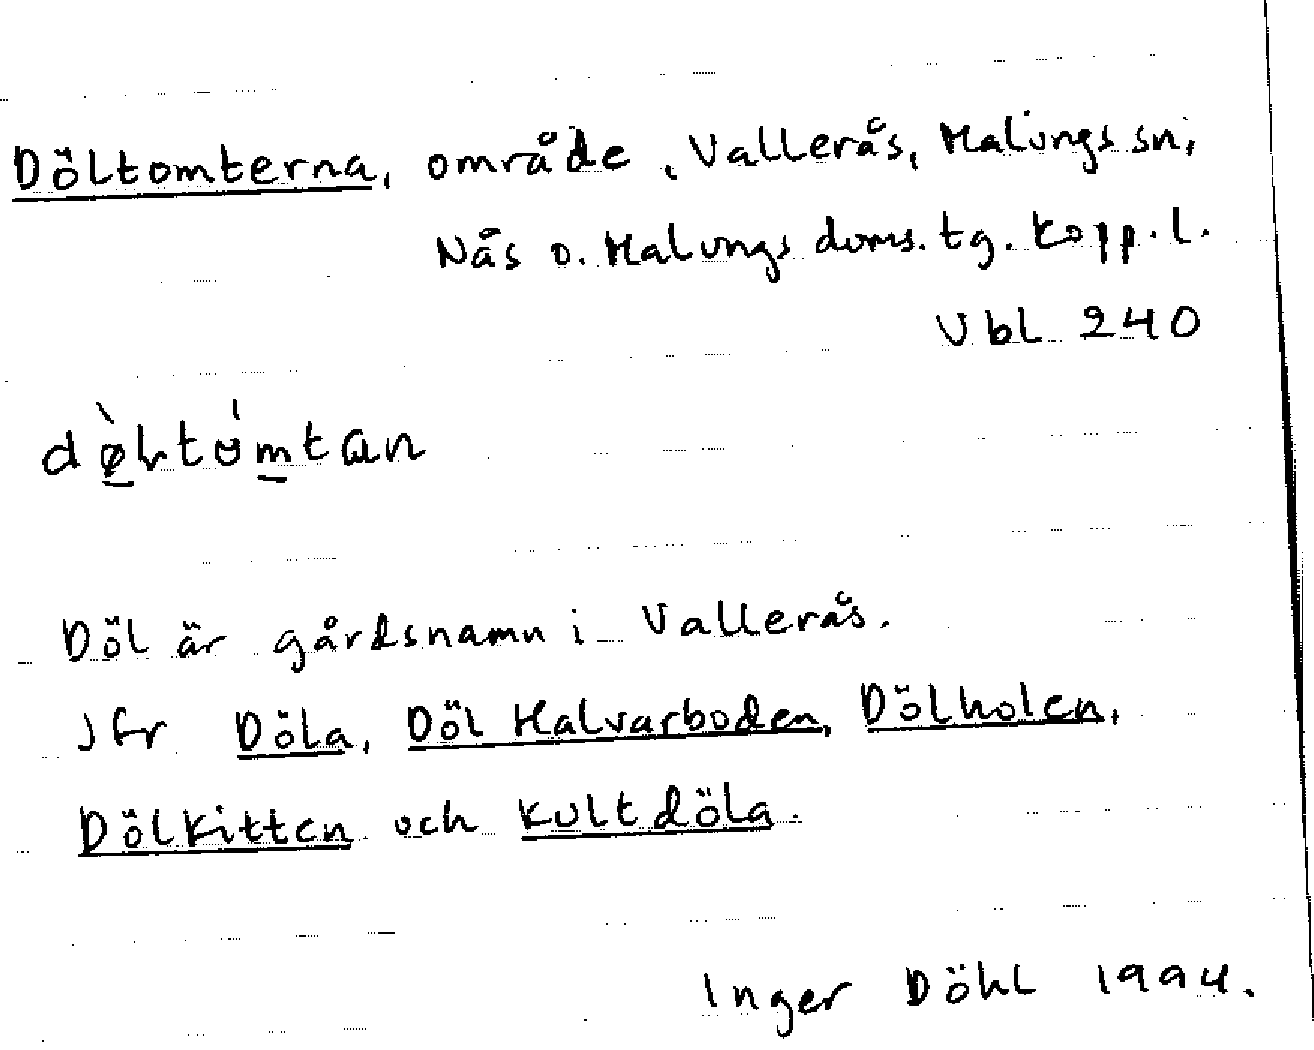 Döltomterna, område, Vallerås, Malungs sn,
Nås o. Malungs doms. tg. Kopp. l.
Vbl 240
Döl är gårdsnamn i Vallerås.
Jfr Döla, Döl Halvarboden, Dölholen,
Dölkitten och Kultdöla.
Inger Döhl 1994.